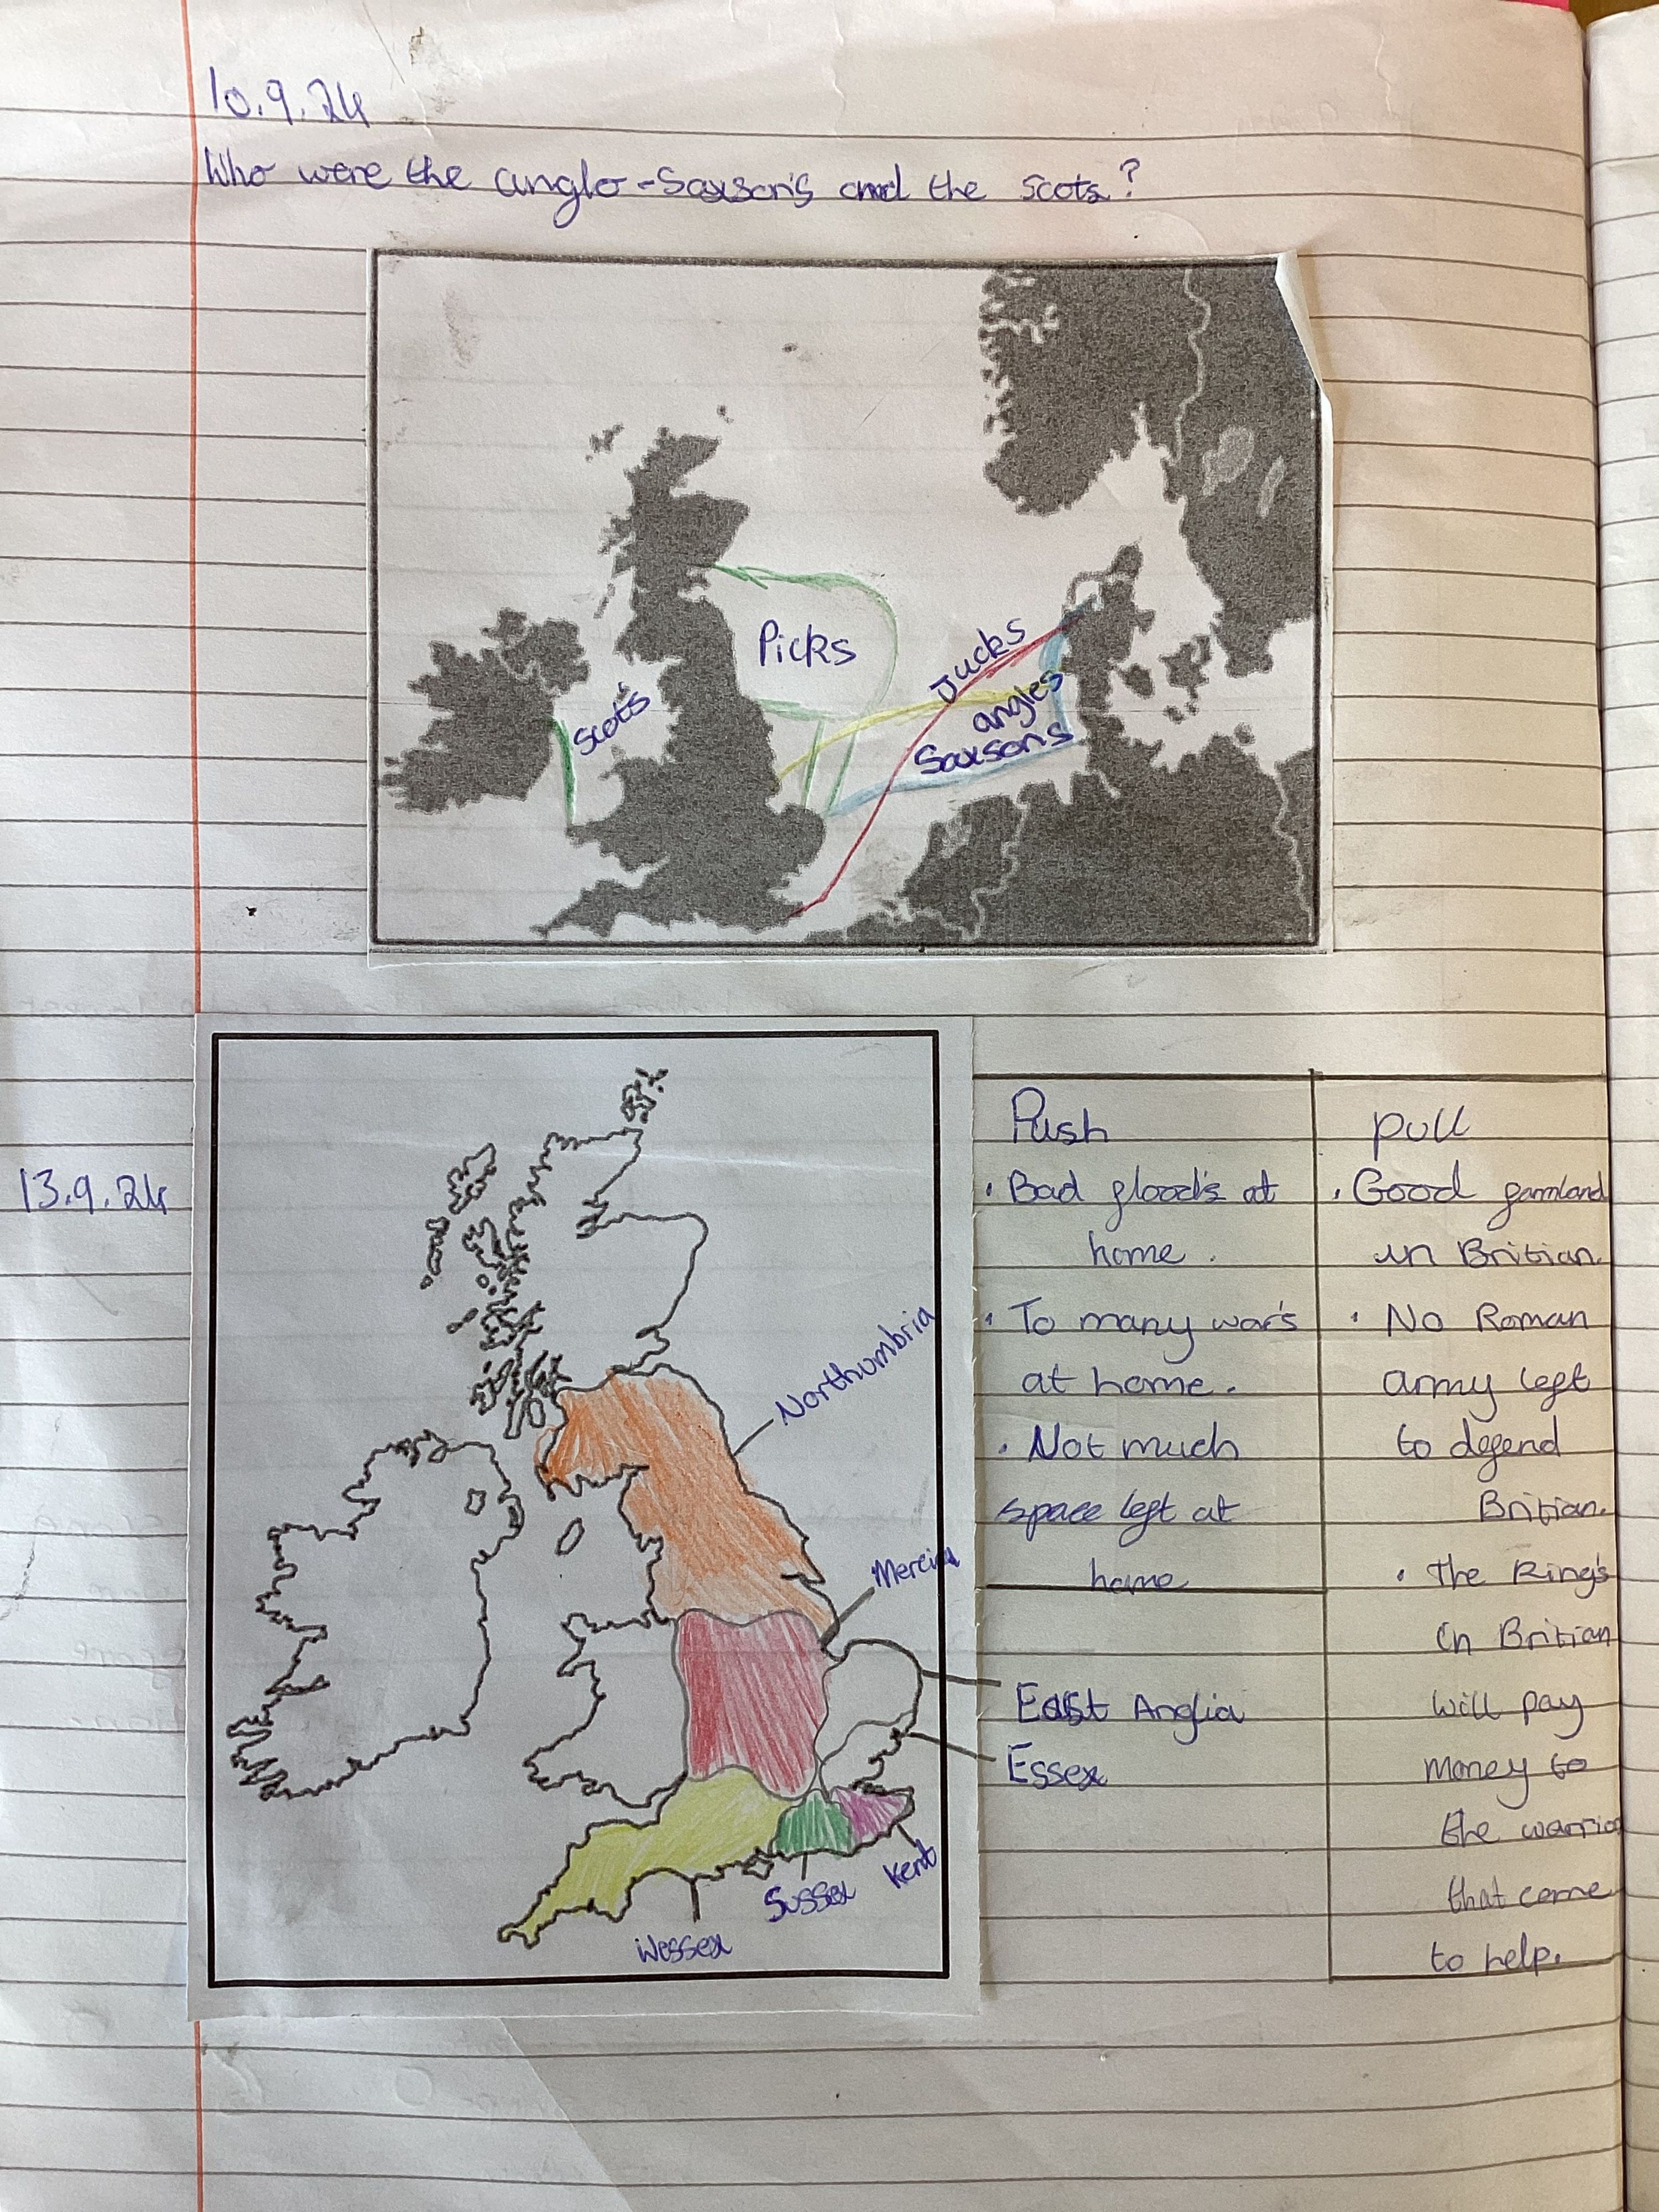 10.9.24
Who were the anglo-Saxson's and the Scots?
Picks
Jucks
Scots
angles
Saxsons
13.9.24
Northumbria
Mercia
East Anglia
Essex
Kent
Sussex
Wessex
Push
• Bad flood's at
home.
• To many war's
at home.
• Not much
space left at
home
pull
• Good farmland
in Britian.
• No Roman
army left
to defend
Britian.
• The King's
in Britian
will pay
money to
the warrior
that come
to help.